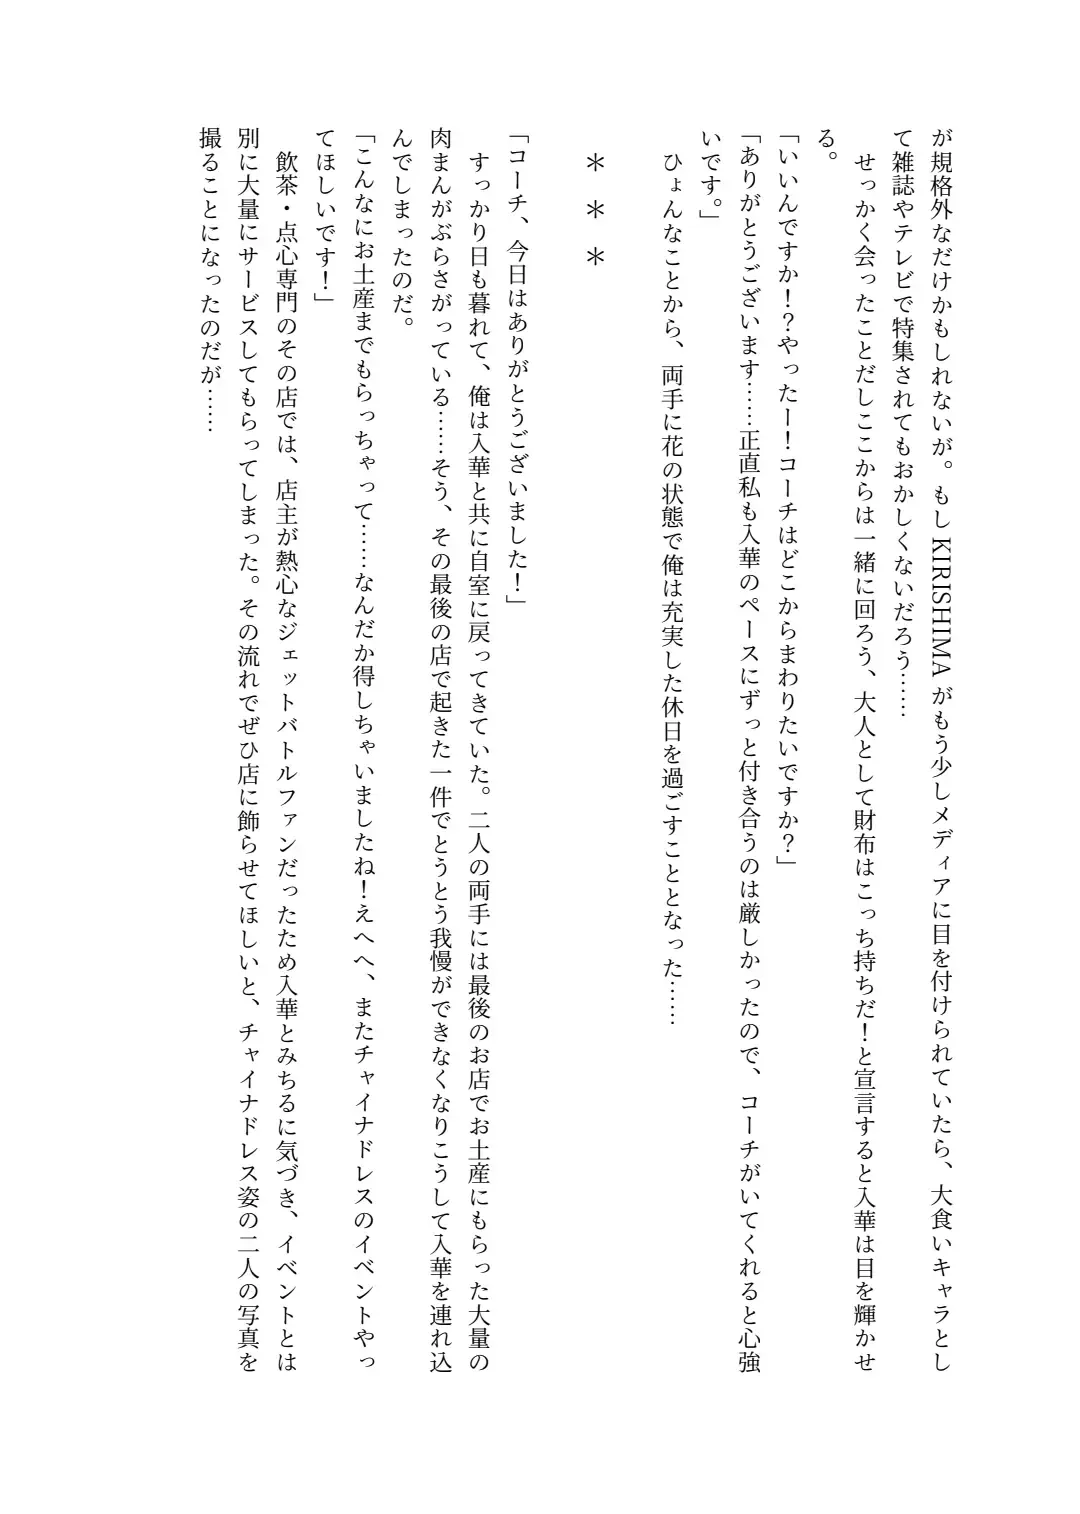 が規格外なだけかもしれないが。もし KIRISHIMA がもう少しメディアに目を付けられていたら、大食いキャラとし
て雑誌やテレビで特集されてもおかしくないだろう……
　せっかく会ったことだしここからは一緒に回ろう、大人として財布はこっち持ちだ！と宣言すると入華は目を輝かせ
る。
「いいんですか！？やったー！コーチはどこからまわりたいですか？」
「ありがとうございます……正直私も入華のペースにずっと付き合うのは厳しかったので、コーチがいてくれると心強
いです。」
　ひょんなことから、両手に花の状態で俺は充実した休日を過ごすこととなった……
＊　＊　＊
「コーチ、今日はありがとうございました！」
　すっかり日も暮れて、俺は入華と共に自室に戻ってきていた。二人の両手には最後のお店でお土産にもらった大量の
肉まんがぶらさがっている……そう、その最後の店で起きた一件でとうとう我慢ができなくなりこうして入華を連れ込
んでしまったのだ。
「こんなにお土産までもらっちゃって……なんだか得しちゃいましたね！えへへ、またチャイナドレスのイベントやっ
てほしいです！」
　飲茶・点心専門のその店では、店主が熱心なジェットバトルファンだったため入華とみちるに気づき、イベントとは
別に大量にサービスしてもらってしまった。その流れでぜひ店に飾らせてほしいと、チャイナドレス姿の二人の写真を
撮ることになったのだが……